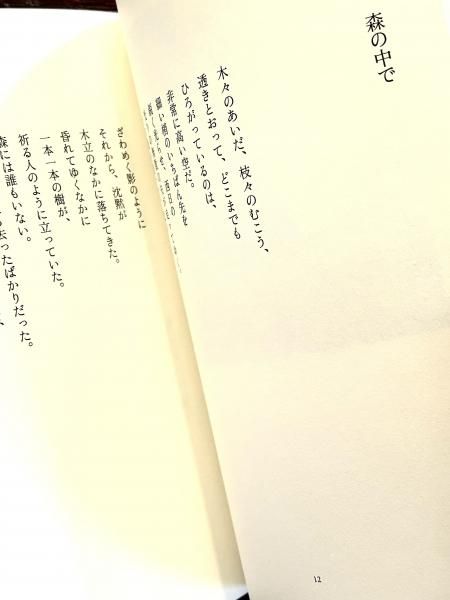 森の中で
木々のあいだ、枝々のむこう、
透きとおって、どこまでも
ひろがっているのは、
非常に高い空だ。
細い梢のいちばん先を
ざわめく影のように
それから、沈黙が
木立のなかに落ちてきた。
昏れてゆくなかに
一本一本の樹が、
祈る人のように立っていた。
森には誰もいない。
去ったばかりだった。
12